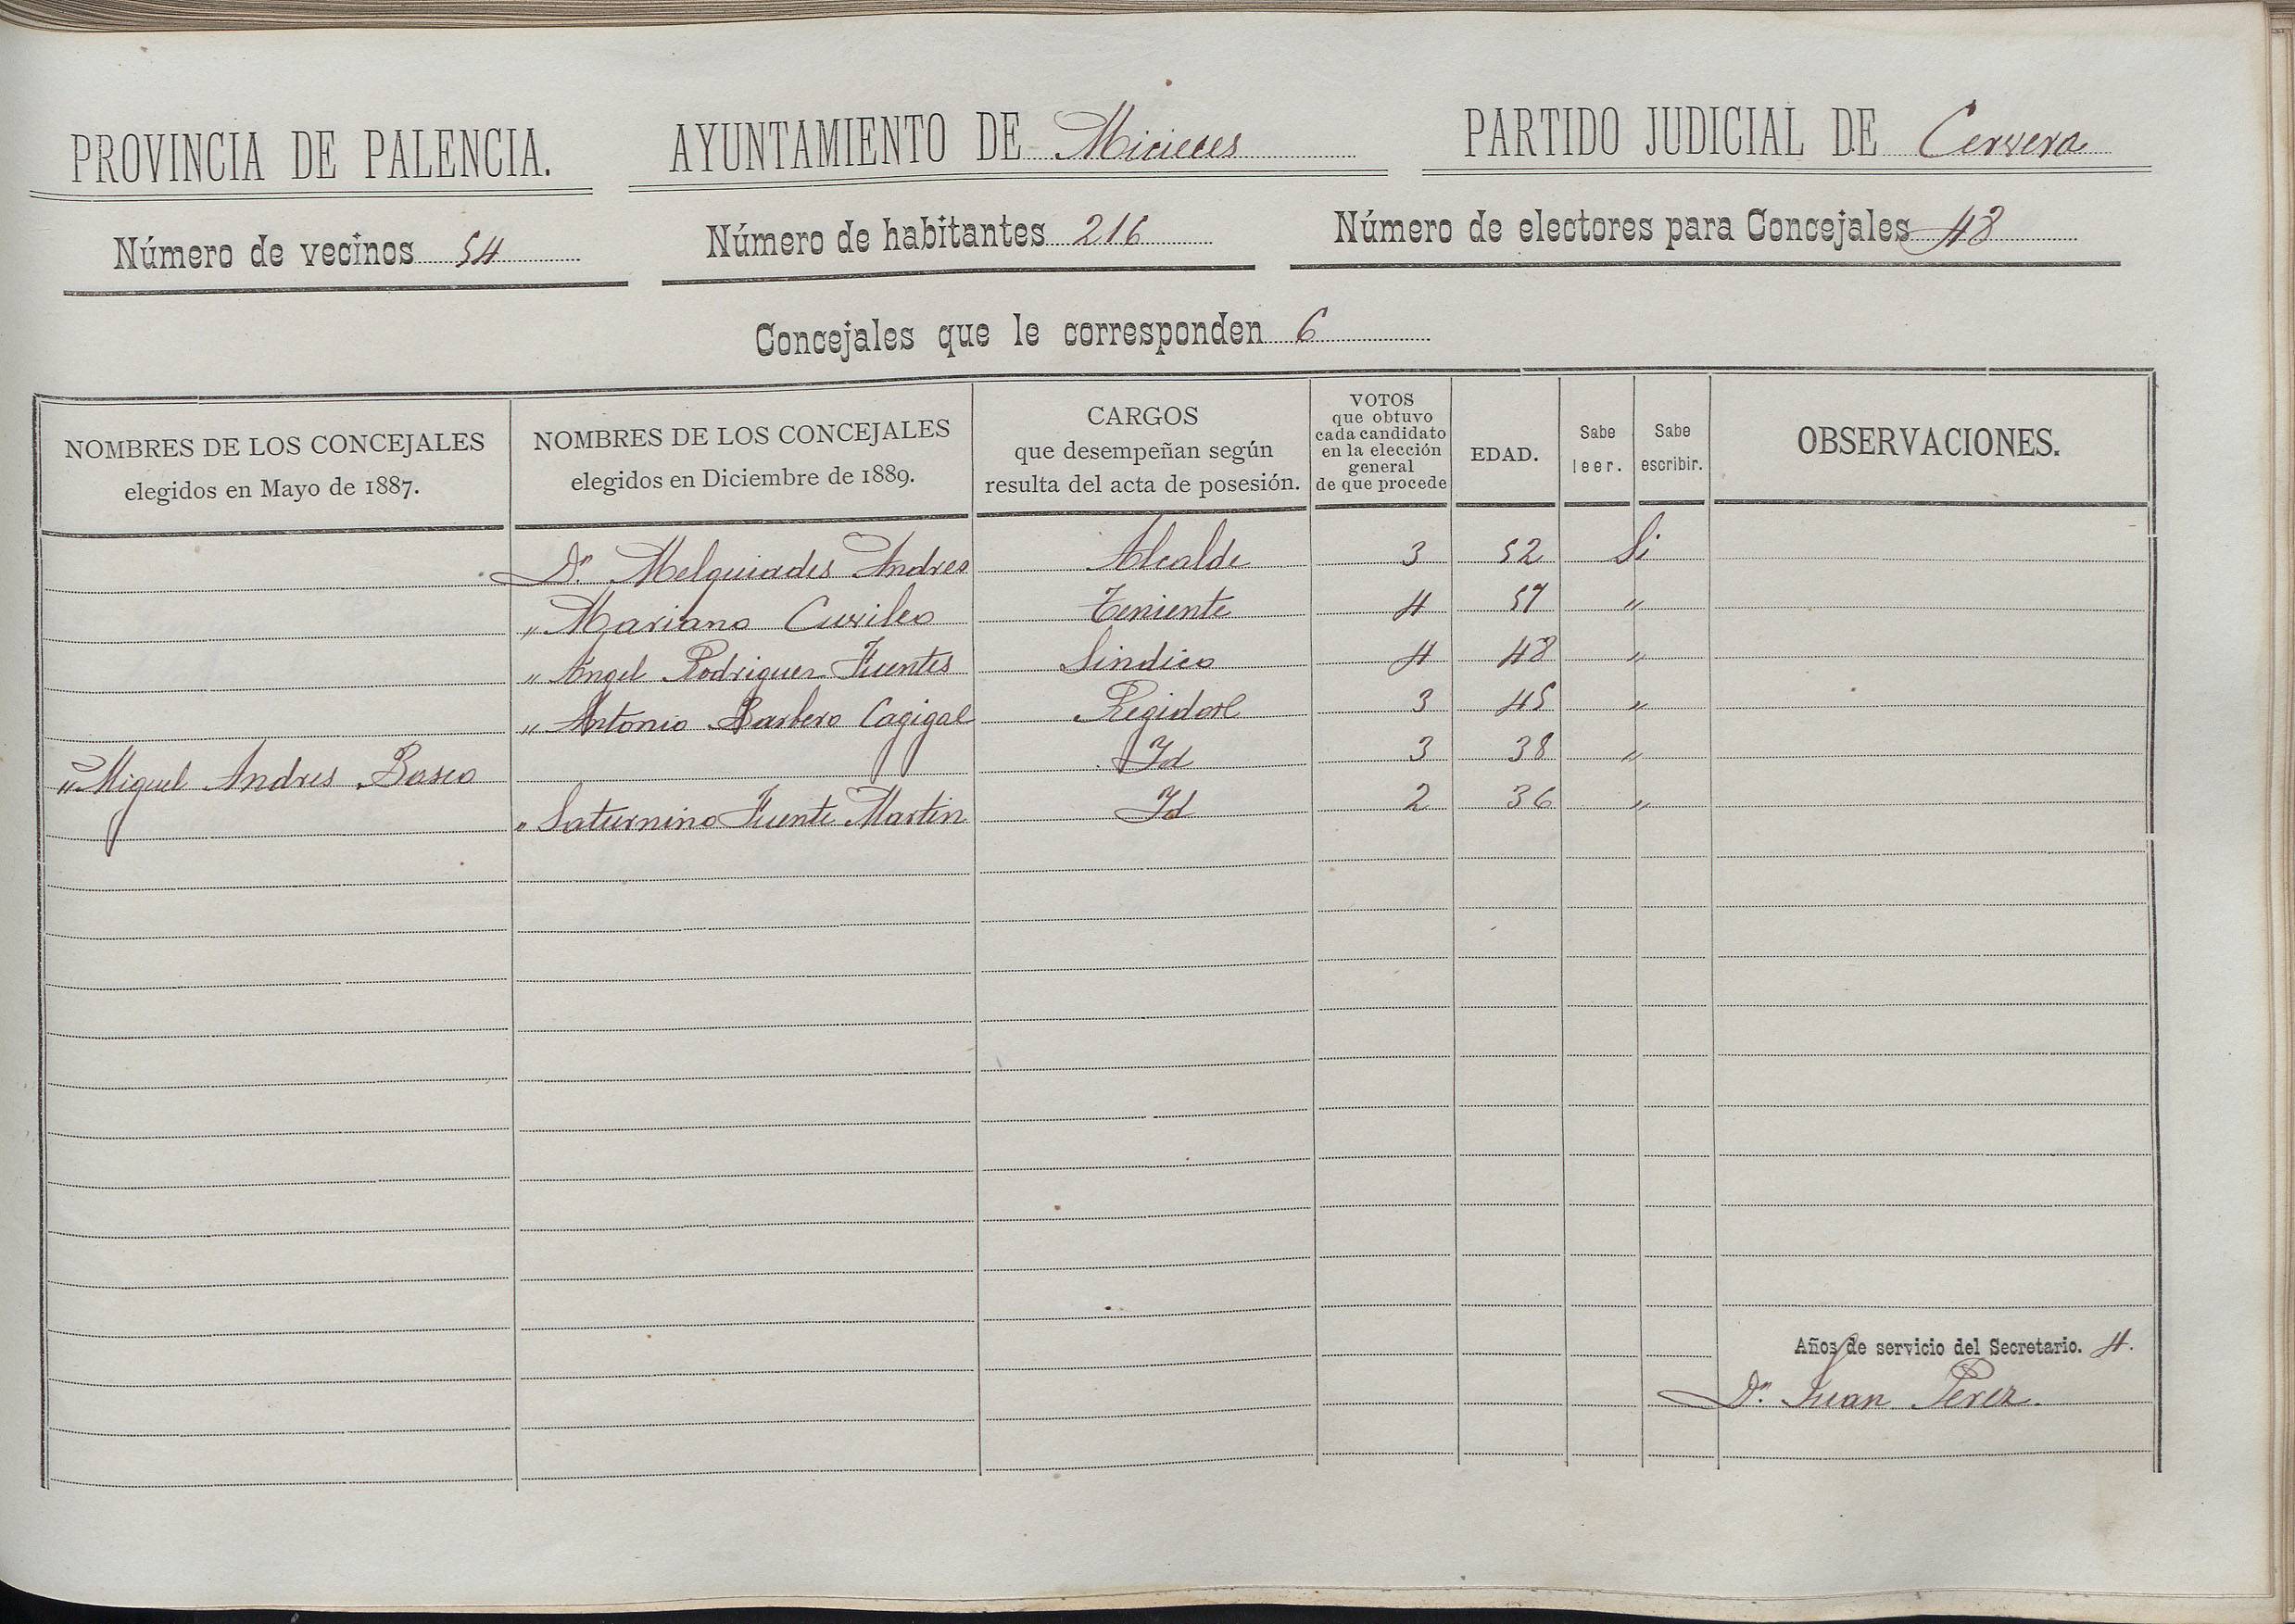 PROVINCIA DE PALENCIA. AYUNTAMIENTO DE Micieces PARTIDO JUDICIAL DE Cervera
Número de vecinos 54 Número de habitantes 216 Número de electores para Concejales 48
Concejales que le corresponden 6
NOMBRES DE LOS CONCEJALES
elegidos en Mayo de 1887.
NOMBRES DE LOS CONCEJALES
elegidos en Diciembre de 1889.
CARGOS
que desempeñan según
resulta del acta de posesión.
VOTOS
que obtuvo
cada candidato
en la elección
general
de que procede
EDAD.
Sabe
leer.
Sabe
escribir.
OBSERVACIONES.
Dn. Melquiades Andres Alcalde 3 52 Si
" Mariano Teniente 4 57 "
" Angel Rodriguez Fuentes Sindico 4 48 "
" Antonio Barbero Cagigal Regidor 1 3 45 "
" Miguel Andres Basco Id 3 38 "
" Saturnino Fuente Martin Id 2 36 "
Años de servicio del Secretario. 4.
Dn. Juan Perez.